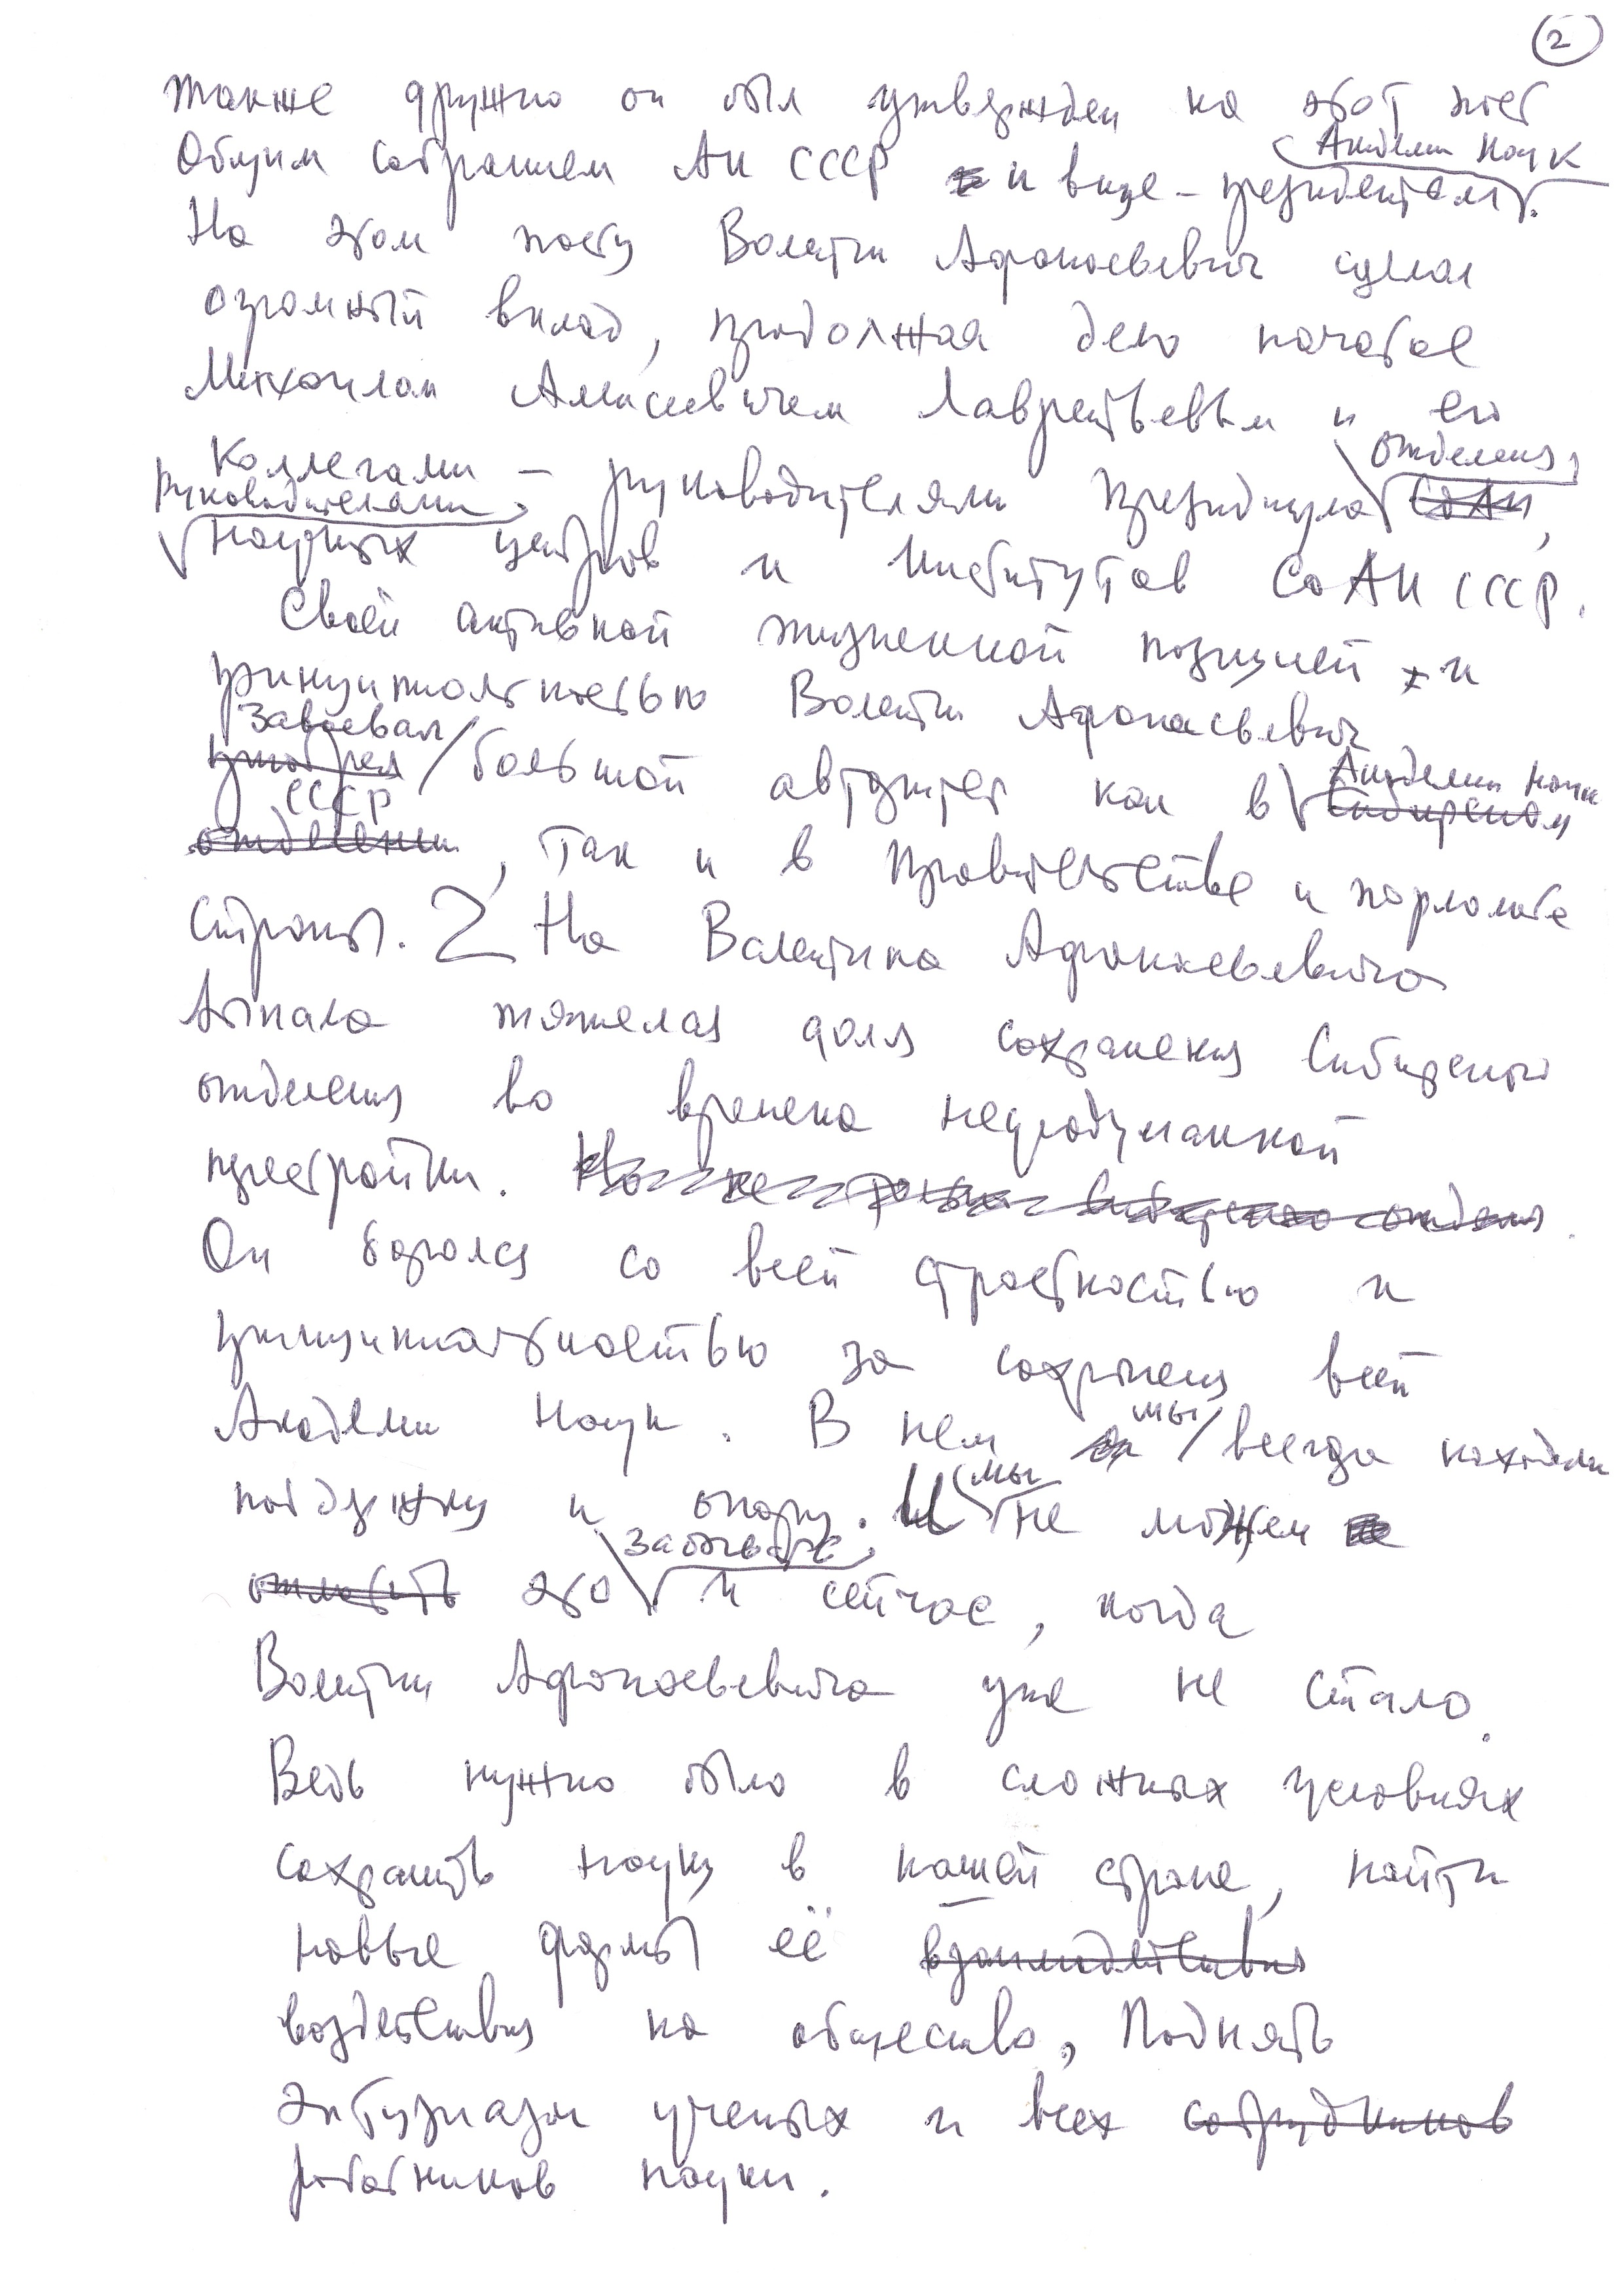 2
также дружно он был утвержден на этот пост
Общим собранием АН СССР и вице-президентом Академии Наук.
На этом посту Валентин Афанасьевич сделал
огромный вклад, продолжая дело начатое
Михаилом Алексеевичем Лаврентьевым и его
коллегами – руководителями Президиума отделения, СоАН,
руководителями научных центров и Институтов СоАН СССР.
Своей активной жизненной позицией и
принципиальностью Валентин Афанасьевич
завоевал приобрел большой авторитет как в Академии Наук Сибирском
СССР отделении, так и в правительстве и парламенте
страны. На Валентина Афанасьевича
выпала тяжелая доля сохранения Сибирского
отделения во времена непродуманной
перестройки. Но не только Сибирского отделения.
Он боролся со всей страстностью и
принципиальностью за сохранения всей
Академии Наук. В нем мы всегда находили
поддержку и опору. И мы не можем
оплатить это забывать, и сейчас, когда
Валентин Афанасьевича уже не стало.
Ведь нужно было в сложных условиях
сохранить науку в нашей стране, найти
новые формы её взаимодействия
воздействия на общество, Поднять
энтузиазм ученых и всех сотрудников
работников науки.